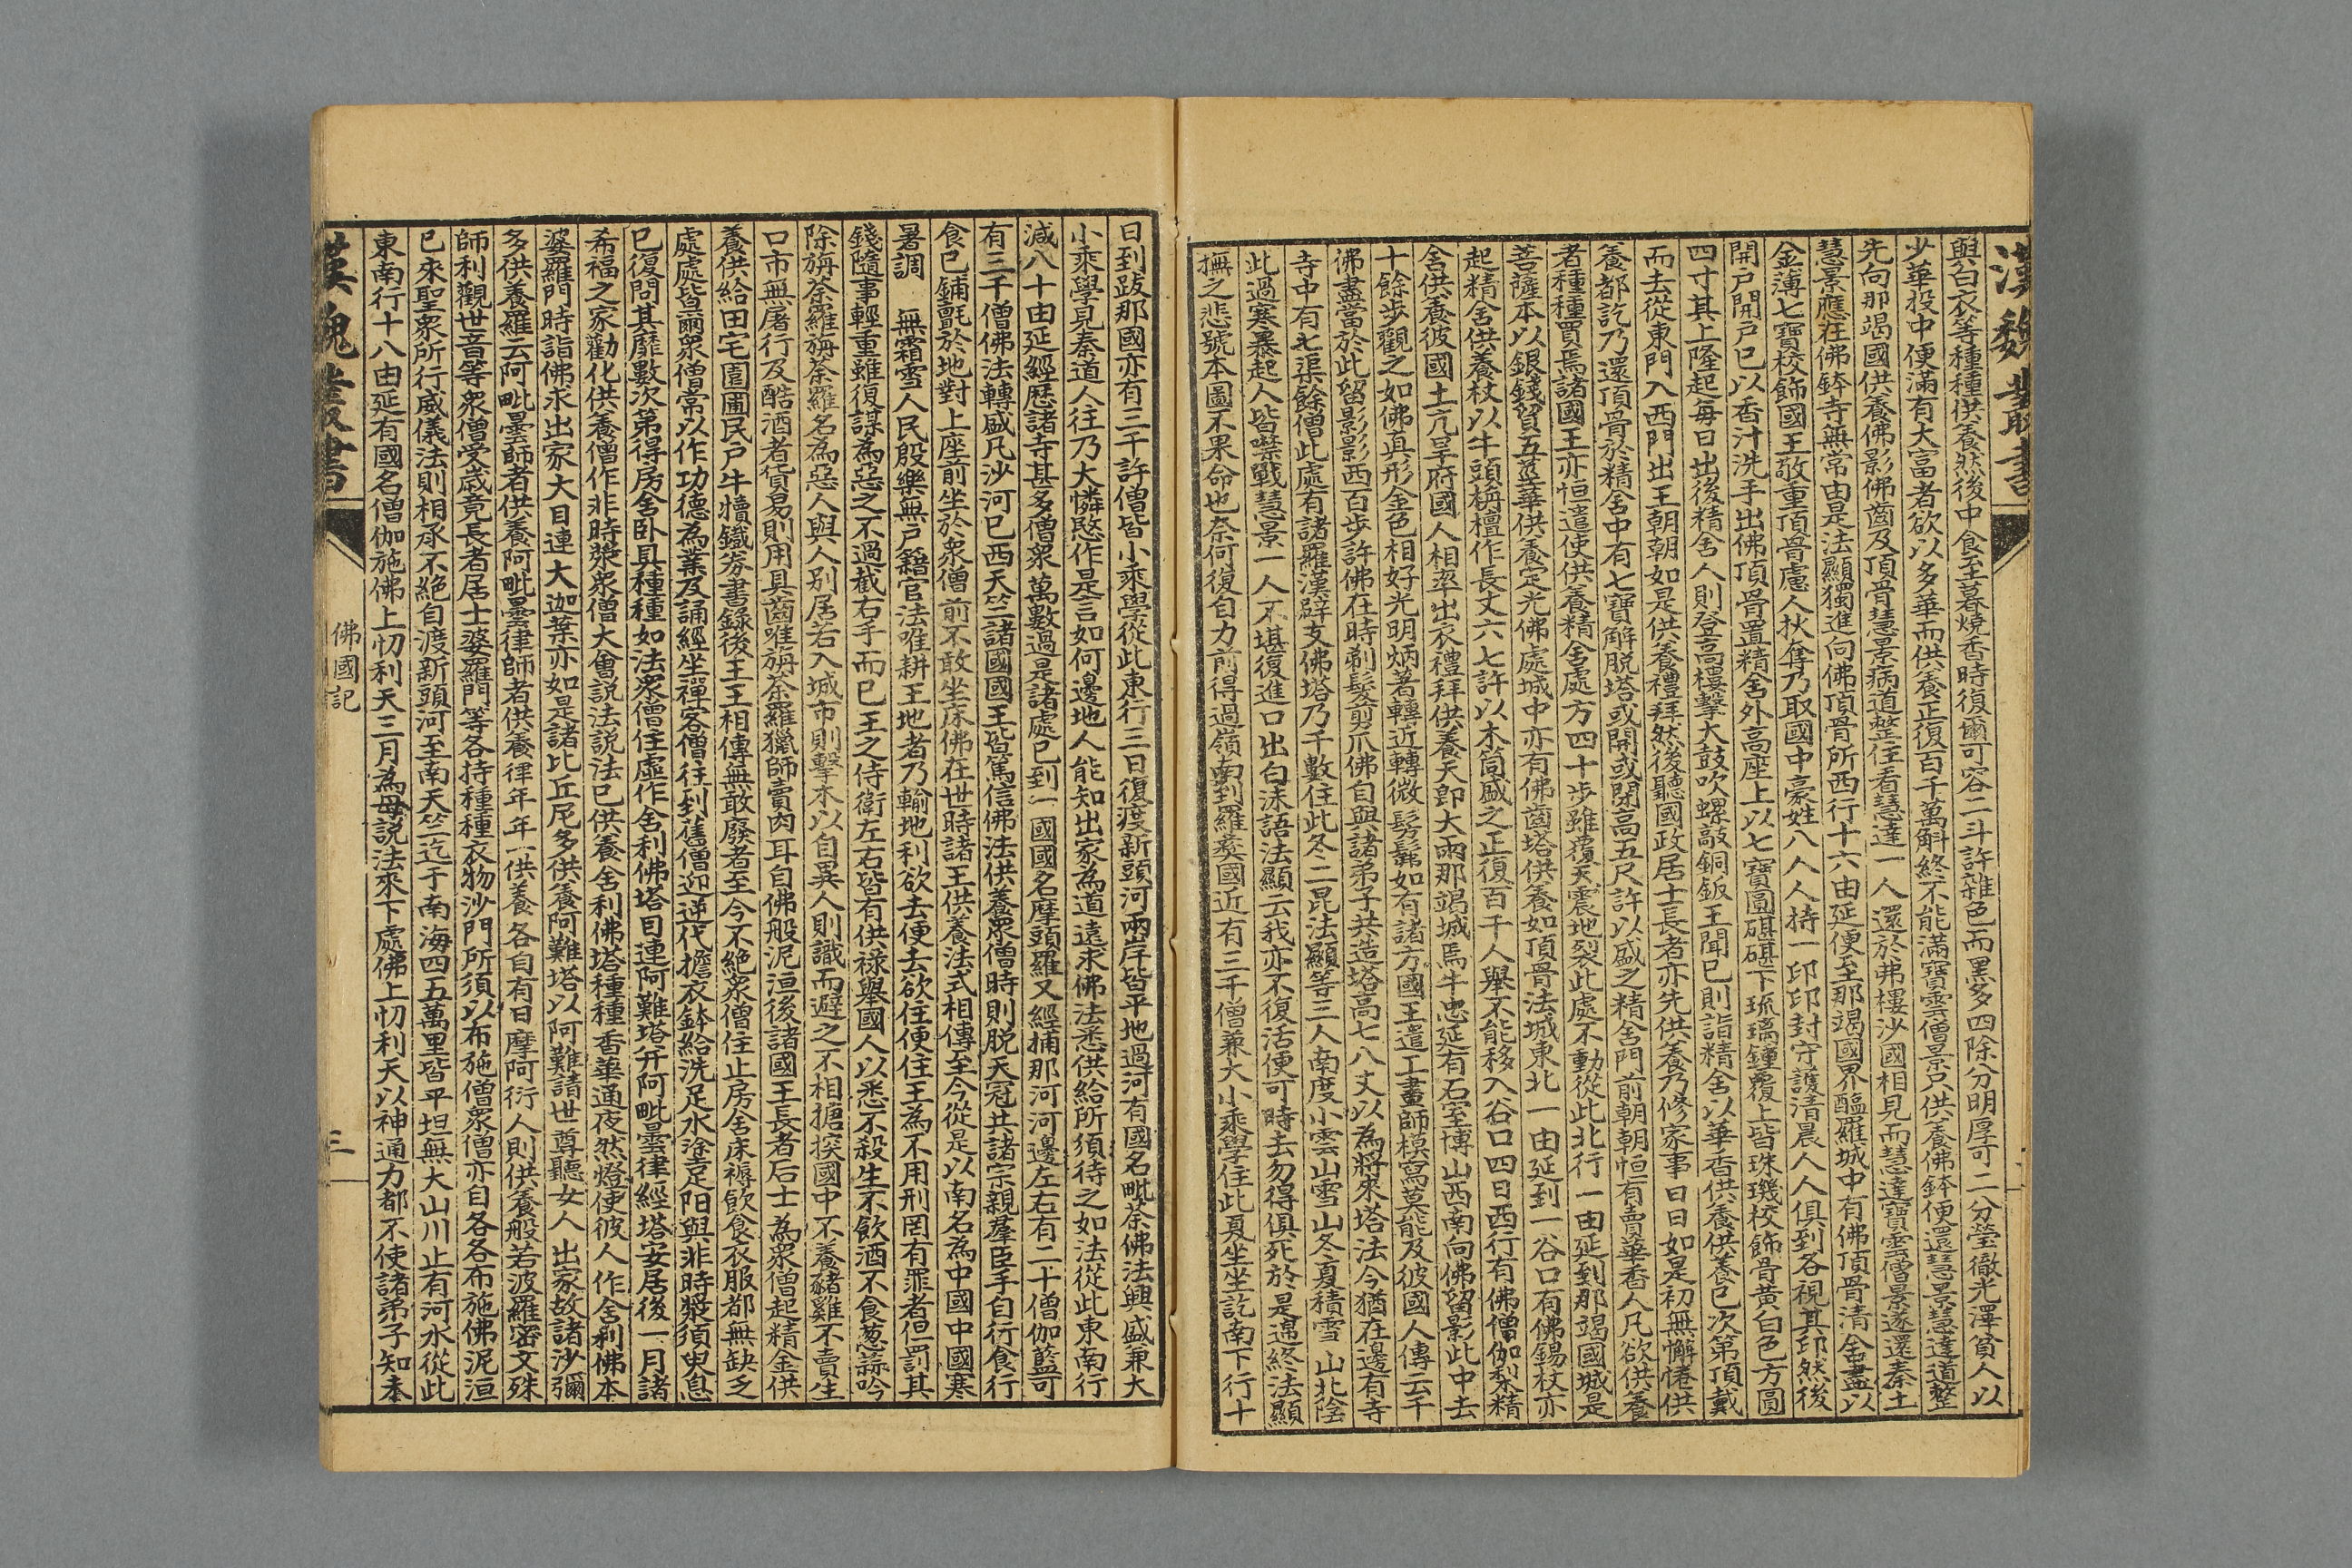 漢魏叢書
與白衣等種種供養然後中食至暮燒香時復爾可容二斗許雜色而黑多四除分明厚可二分瑩徹光澤貧人以
少華投中便滿有大富者欲以多華而供養正復百千萬斛終不能滿寶雲僧景只供養佛鉢便還慧景慧達道整
先向那竭國供養佛影佛齒及頂骨慧景病道整住看慧達一人還於弗樓沙國相見而慧達寶雲僧景遂還秦土
慧景應在佛鉢寺無常由是法顯獨進向佛頂骨所西行十六由延便至那竭國界醯羅城中有佛頂骨清舍盡以
金薄七寶校飾國王敬重頂骨慮人抄奪乃取國中豪姓八人人持一印印封守護清晨人人俱到各視其印然後
開戶開戶已以香汁洗手出佛頂骨置精舍外高座上以七寶圓碪碪下琉璃鐘覆上皆珠璣校飾骨黃白色方圓
四寸其上隆起每日出後精舍人則登高樓擊大鼓吹螺敲銅鈸王聞已則詣精舍以華香供養供養已次第頂戴
而去從東門入西門出王朝朝如是供養禮拜然後聽國政居士長者亦先供養乃修家事日日如是初無懈倦供
養都訖乃還頂骨於精舍中有七寶解脫塔或開或閉高五尺許以盛之精舍門前朝朝恒有賣華香人凡欲供養
者種種買焉諸國王亦恒遣使供養精舍處方四十步雖覆天震地裂此處不動從此北行一由延到那竭國城是
菩薩本以銀錢貿五莖華供養定光佛處城中亦有佛齒塔供養如頂骨法城東北一由延到一谷口有佛錫杖亦
起精舍供養杖以牛頭栴檀作長丈六七許以木筒盛之正復百千人舉不能移入谷口四日西行有佛僧伽梨精
舍供養彼國土亢旱府國人相率出衣禮拜供養天即大雨那竭城焉牛忠延有石室博山西南向佛留影此中去
十餘步觀之如佛真形金色相好光明炳著轉近轉微髣髴如有諸方國王遣工畫師模寫莫能及彼國人傳云千
佛盡當於此留影影西百步許佛在時剃髮翦爪佛自與諸弟子共造塔高七八丈以為將來塔法今猶在邊有寺
寺中有七渠餘僧此處有諸羅漢辟支佛塔乃千數住此冬二昆法顯等三人南度小雲山雪山冬夏積雪山北陰
此過寒暴起人皆噤戰慧景一人不堪復進口出白沫語法顯云我亦不復活便可時去勿得俱死於是遂終法顯
撫之悲號本圖不果命也奈何復自力前得過嶺南到羅夷國近有三千僧兼大小乘學住此夏坐坐訖南下行十
日到跋那國亦有三千許僧皆小乘學從此東行三日復渡新頭河兩岸皆平地過河有國名毗荼佛法興盛兼大
小乘學見秦道人往乃大憐愍作是言如何邊地人能知出家為道遠求佛法悉供給所須待之如法從此東南行
減八十由延經歷諸寺甚多僧眾萬數過是諸處已到一國國名摩頭羅又經捕那河河邊左右有二十僧伽藍可
有三千僧佛法轉盛凡沙河已西天竺諸國國王皆篤信佛法供養眾僧時則脫天冠共諸宗親羣臣手自行食行
食已鋪氈於地對上座前坐於眾僧前不敢坐床佛在世時諸王供養法式相傳至今從是以南名為中國中國寒
暑調 無霜雪人民殷樂無戶籍官法唯耕王地者乃輸地利欲去便去欲住便住王為不用刑罔有罪者但罰其
錢隨事輕重雖復謀為惡之不過截右手而已王之侍衛左右皆有供祿舉國人以悉不殺生不飲酒不食葱蒜吟
除旃荼羅旃荼羅名為惡人與人別居若入城市則擊木以自異人則識而避之不相搪揬國中不養豬雞不賣生
口市無屠行及酤酒者貨易則用具齒唯旃荼羅獵師賣肉耳自佛般泥洹後諸國王長者居士為眾僧起精舍供
養供給田宅園圃民戶牛犢鐵券書錄後王王相傳無敢廢者至今不絕眾僧住止房舍床褥飲食衣服都無缺乏
處處皆爾眾僧常以作功德為業及誦經坐禪客僧往到舊僧迎逆代擔衣鉢給洗足水塗足阳與非時漿須臾息
已復問其靡數次第得房舍臥具種種如法眾僧住處作舍利佛塔目連阿難塔并阿毗曇律經塔安居後一月諸
希福之家勸化供養僧作非時漿眾僧大會說法說法已供養舍利佛塔種種香華通夜然燈使彼人作舍利佛本
婆羅門時詣佛求出家大目連大迦葉亦如是諸比丘尼多供養阿難塔以阿難請世尊聽女人出家故諸沙彌
多供養羅云阿毗曇師者供養阿毗曇律師者供養律年年一供養各自有日摩阿衍人則供養般若波羅密文殊
師利觀世音等眾僧受歲竟長者居士婆羅門等各持種種衣物沙門所須以布施僧眾僧亦自各各布施佛泥洹
已來聖眾所行威儀法則相承不絕自渡新頭河至南天竺迄于南海四五萬里皆平坦無大山川止有河水從此
東南行十八由延有國名僧伽施佛上忉利天三月為母說法來下處佛上忉利天以神通力都不使諸弟子知未
漢魏叢書
佛國記
三